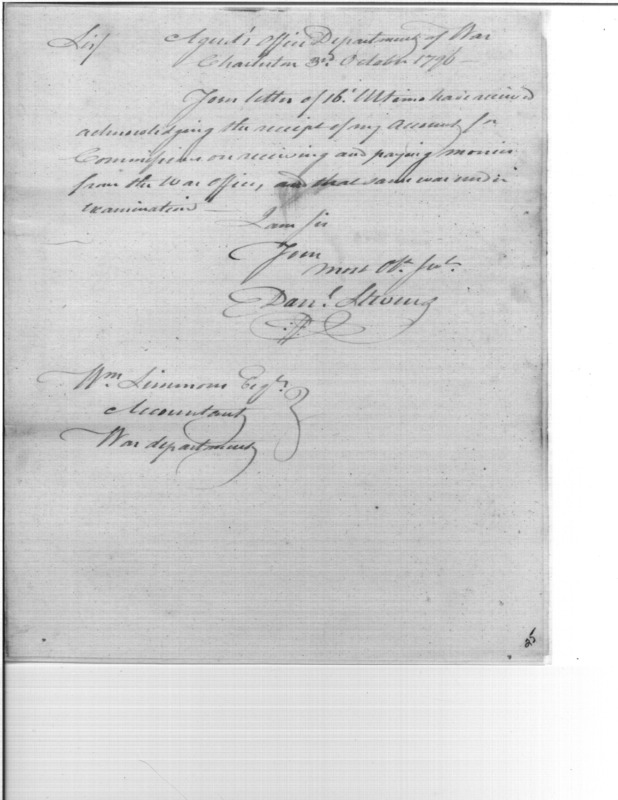 Sir/ Agent's Office Department of War
Charleston 3rd October 1796 —
Your letter of 16t Ultimo have received
acknowledging the receipt of my Account for
Commissions on receiving and paying monies
from the War Office, and that same was under
examination —
I am Sir
Your
most Obt Servt
Danl Stevens
Wm Simmons Esqr
Accountant
War department
25